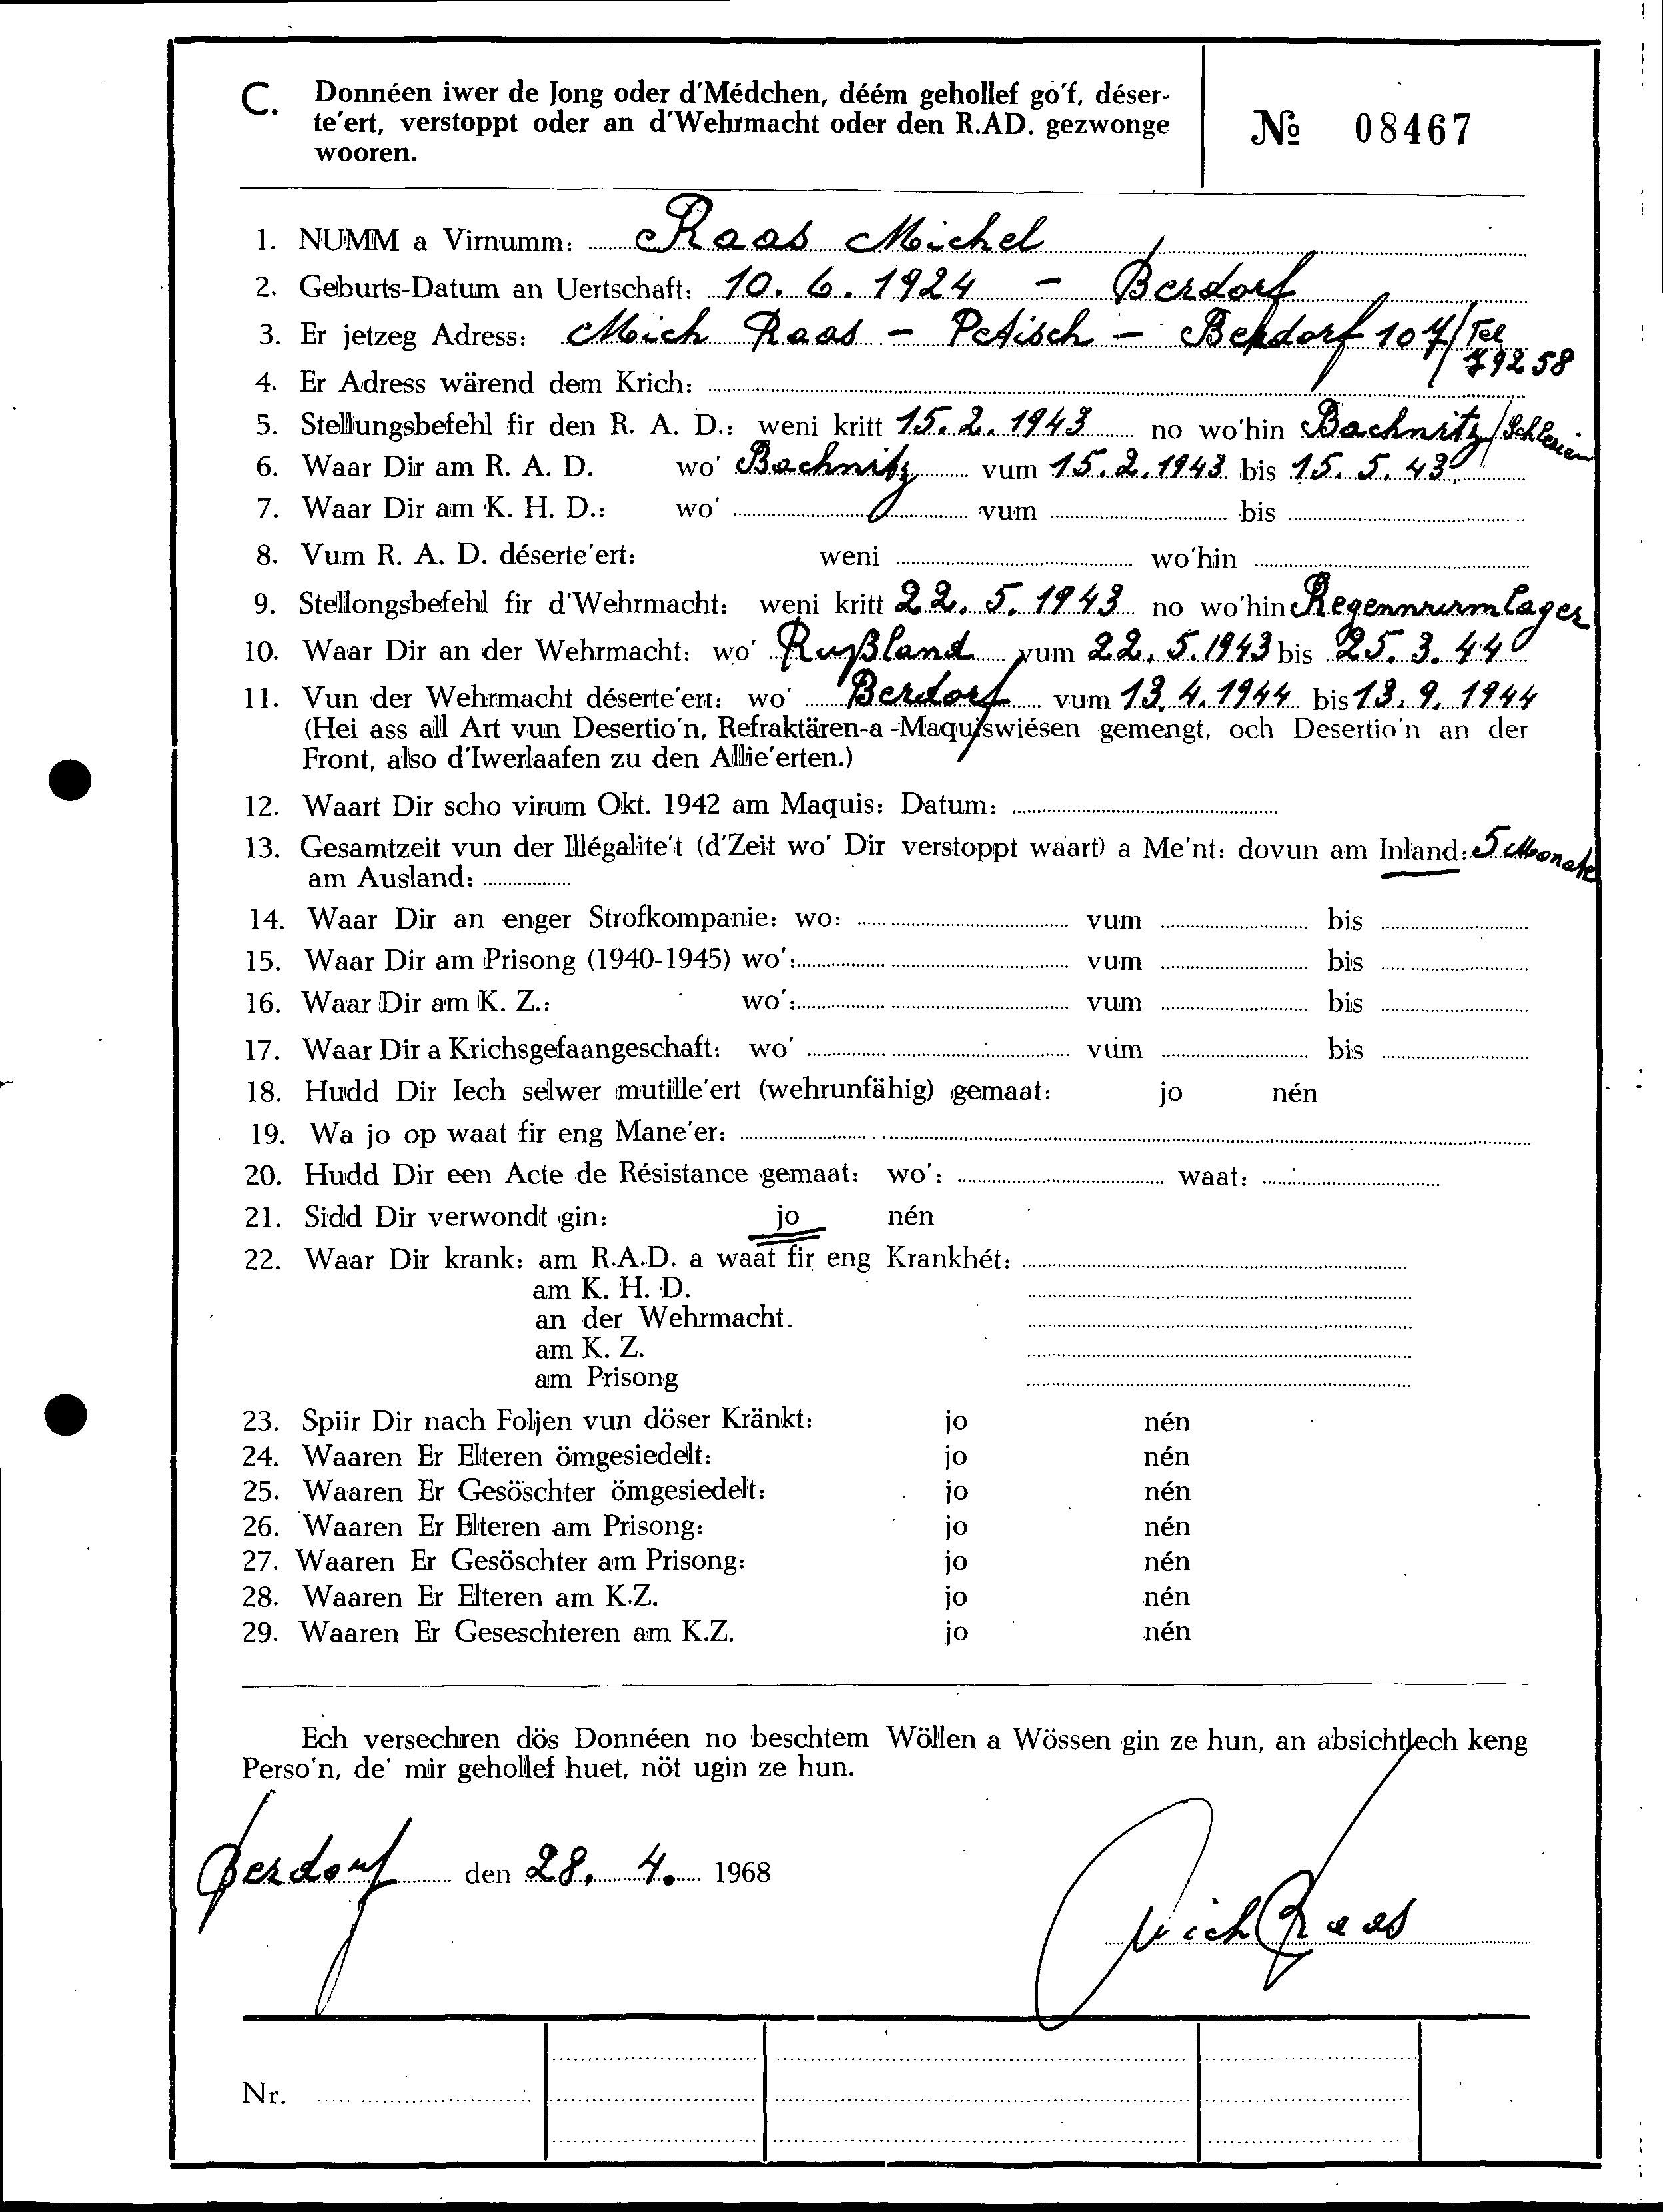 C. Donnéen iwer de Jong oder d'Médchen, déém gehollef go'f, déser-
te'ert, verstoppt oder an d'Wehrmacht oder den R.AD. gezwonge
wooren.
№ 08467
1. NUMM a Virnumm: Raas Michel
2. Geburts-Datum an Uertschaft: 10. 6. 1924 - Berdorf
3. Er jetzeg Adress: Mich Raas - Petisch - Berdorf 107/Tel
79258
4. Er Adress wärend dem Krich:
5. Stellungsbefehl fir den R. A. D.: weni kritt 15. 2. 1943 no wo'hin Bachnitz/Schlesien
6. Waar Dir am R. A. D. wo' Bachnitz vum 15. 2. 1943 bis 15. 5. 43
7. Waar Dir am K. H. D.: wo' vum bis
8. Vum R. A. D. déserte'ert: weni wo'hin
9. Stellongsbefehl fir d'Wehrmacht: weni kritt 22. 5. 1943 no wo'hin Regenwurmlager
10. Waar Dir an der Wehrmacht: wo' Rußland vum 22. 5. 1943 bis 25. 3. 44
11. Vun der Wehrmacht déserte'ert: wo' Berdorf vum 13. 4. 1944 bis 13. 9. 1944
(Hei ass all Art vun Desertio'n, Refraktären-a-Maquiswiésen gemengt, och Desertio'n an der
Front, also d'Iwerlaafen zu den Allie'erten.)
12. Waart Dir scho virum Okt. 1942 am Maquis: Datum:
13. Gesamtzeit vun der Illégalite't (d'Zeit wo' Dir verstoppt waart) a Me'nt: dovun am Inland: 5 Monate
am Ausland:
14. Waar Dir an enger Strofkompanie: wo: vum bis
15. Waar Dir am Prisong (1940-1945) wo': vum bis
16. Waar Dir am K. Z.: wo': vum bis
17. Waar Dir a Krichsgefaangeschaft: wo' vum bis
18. Hudd Dir Iech selwer mutille'ert (wehrunfähig) gemaat: jo nén
19. Wa jo op waat fir eng Mane'er:
20. Hudd Dir een Acte de Résistance gemaat: wo': waat:
21. Sidd Dir verwondt gin: jo nén
22. Waar Dir krank: am R.A.D. a waat fir eng Krankhét:
am K. H. D.
an der Wehrmacht.
am K. Z.
am Prisong
23. Spiir Dir nach Foljen vun döser Kränkt: jo nén
24. Waaren Er Elteren ömgesiedelt: jo nén
25. Waaren Er Gesöschter ömgesiedelt: jo nén
26. Waaren Er Elteren am Prisong: jo nén
27. Waaren Er Gesöschter am Prisong: jo nén
28. Waaren Er Elteren am K.Z. jo nén
29. Waaren Er Geseschteren am K.Z. jo nén
Ech versechren dös Donnéen no beschtem Wöllen a Wössen gin ze hun, an absichtlech keng
Perso'n, de' mir gehollef huet, nöt ugin ze hun.
Berdorf den 28. 4. 1968
Mich Raas
Nr.